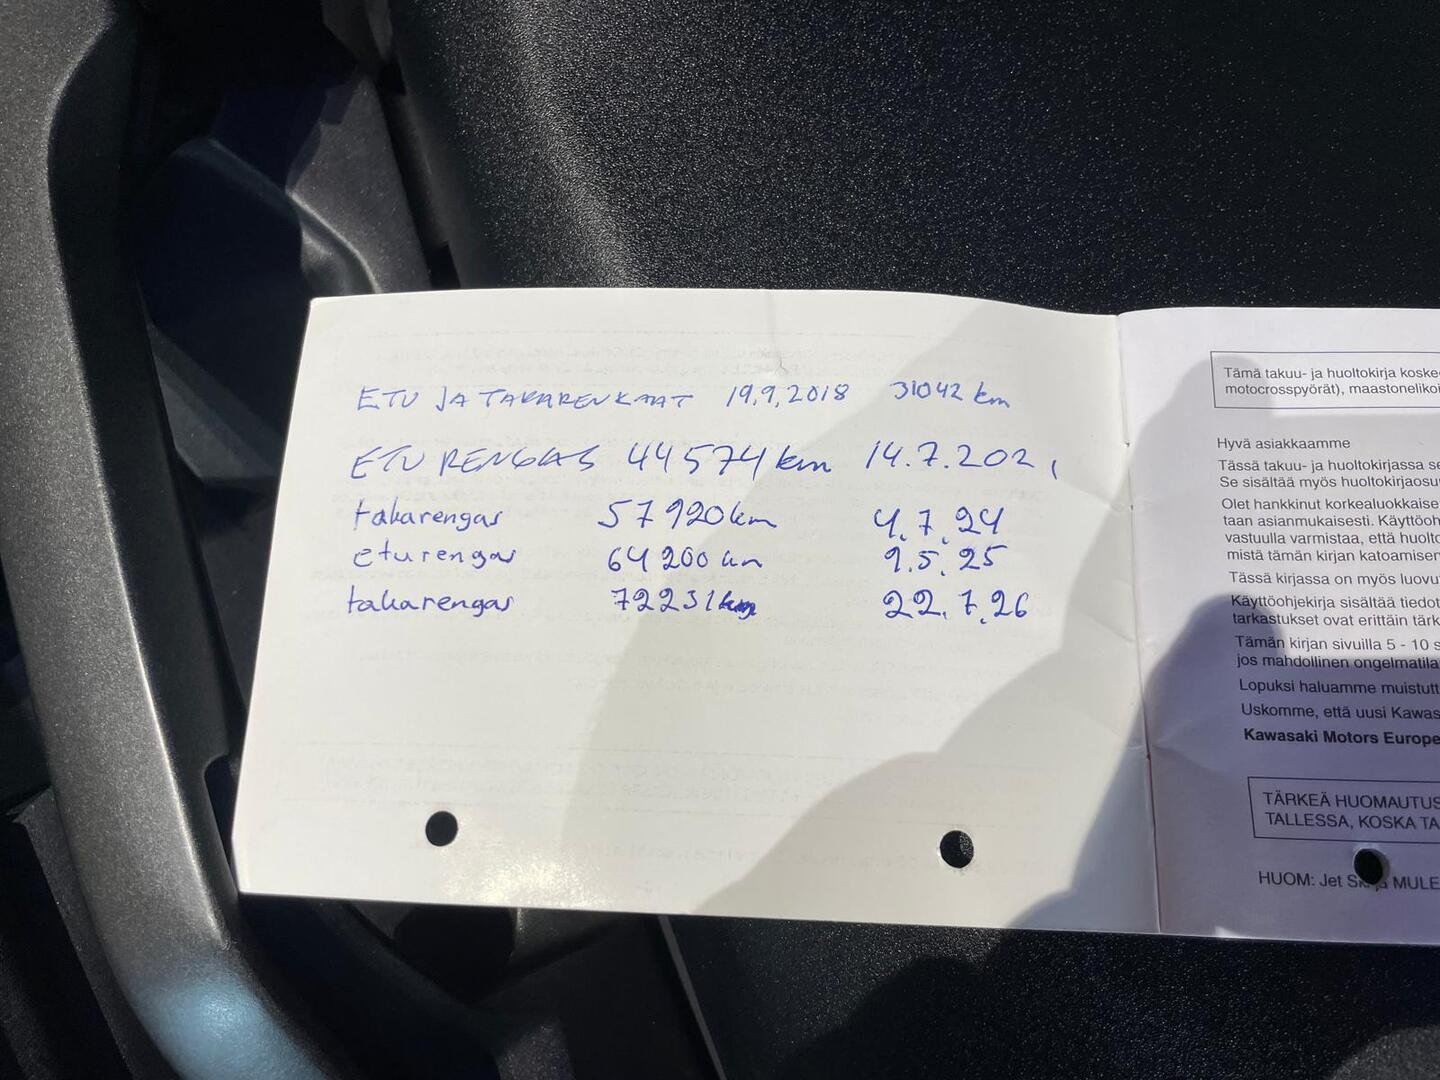 ETU JA TAKARENKAAT 19.9.2018 31042 km
ETU RENGAS 44574 km 14.7.2021
takarengas 57920 km 4.7.24
eturengas 64200 km 9.5.25
takarengas 72231 km 22.7.26
Tämä takuu- ja huoltokirja koske
motocrosspyörät), maastonelikoi
Hyvä asiakkaamme
Tässä takuu- ja huoltokirjassa se
Se sisältää myös huoltokirjaosu
Olet hankkinut korkealuokkaise
taan asianmukaisesti. Käyttöoh
vastuulla varmistaa, että huolto
mistä tämän kirjan katoamisen
Tässä kirjassa on myös luovu
Käyttöohjekirja sisältää tiedot
tarkastukset ovat erittäin tärk
Tämän kirjan sivuilla 5 - 10 s
jos mahdollinen ongelmatila
Lopuksi haluamme muistutt
Uskomme, että uusi Kawas
Kawasaki Motors Europe
TÄRKEÄ HUOMAUTUS
TALLESSA, KOSKA TA
HUOM: Jet Ski ja MULE